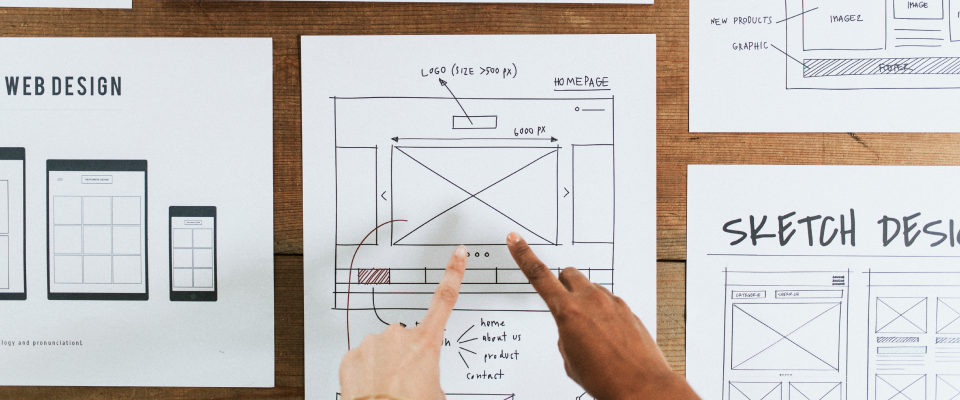 WEB DESIGN
logy and pronunciation1
LOGO (SIZE >500 PX)
HOMEPAGE
6000 PX
home
about us
product
contact
NEW PRODUCTS
IMAGE2
IMAGE
GRAPHIC
FOOTER
SKETCH DESI
CATEGORIE